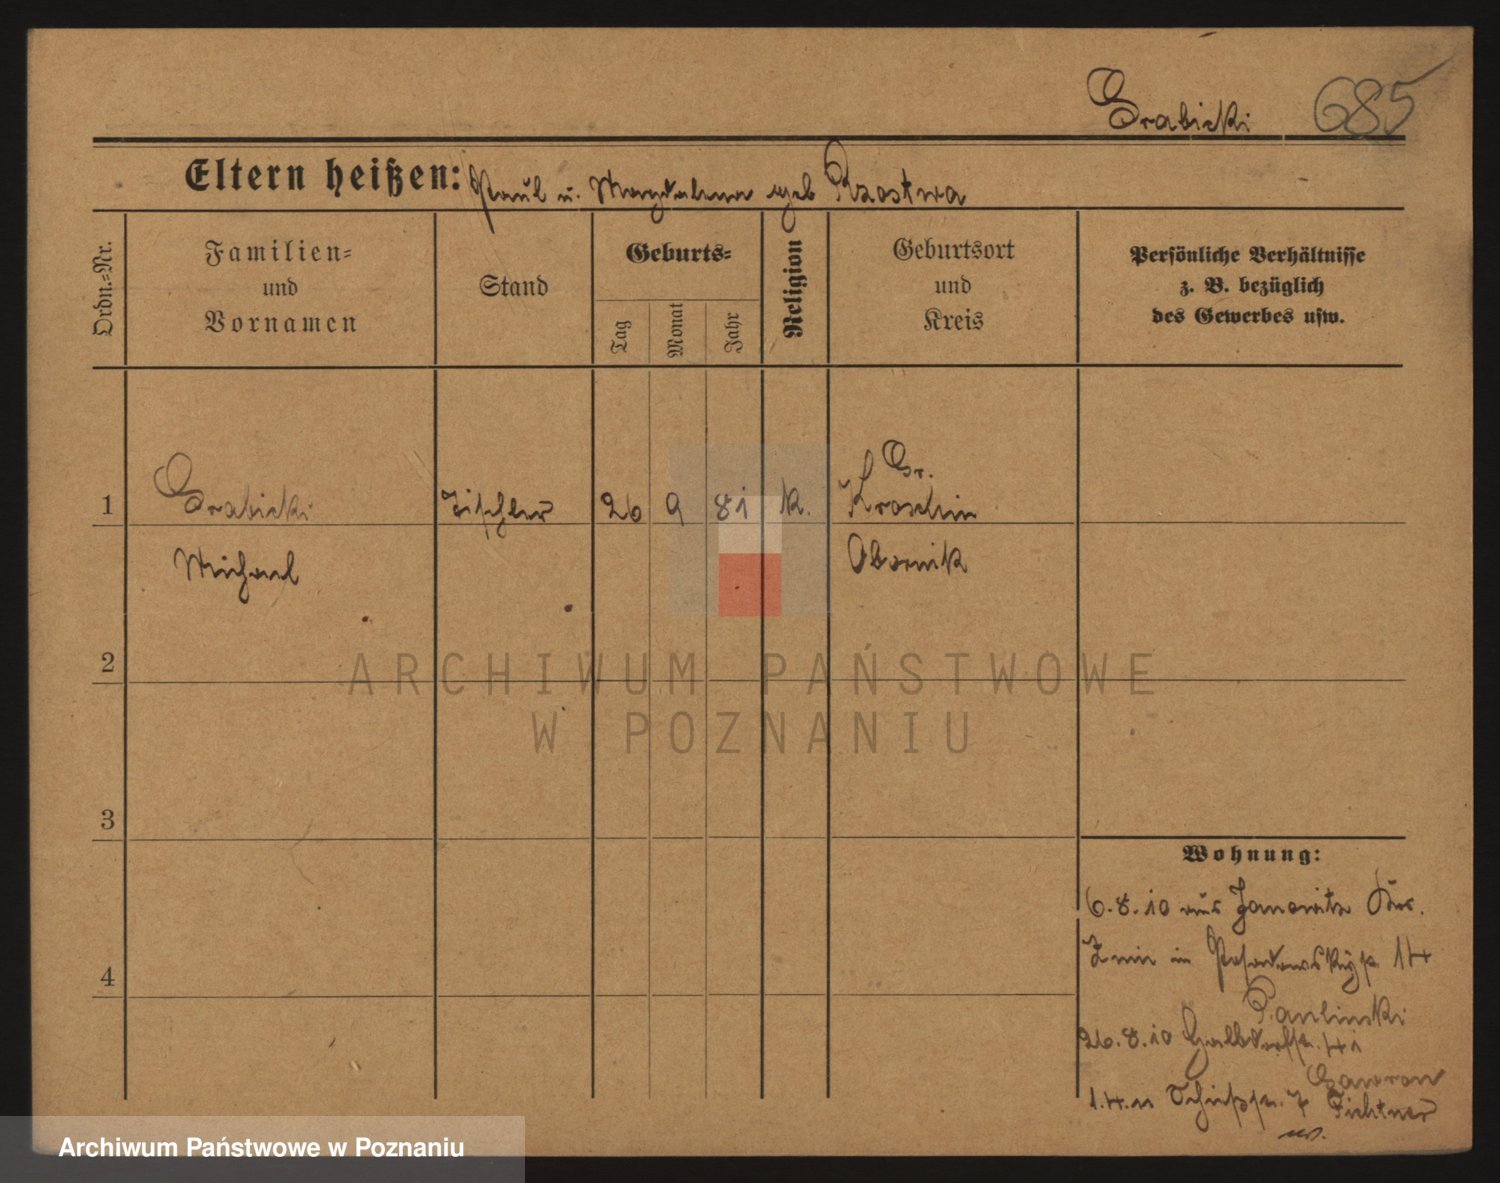 Grabicki 685
Eltern heißen: Paul u. Magdalena geb Rzostwa
Ordn.-Nr.
Familien-
und
Vornamen
Stand
Geburts-
Tag
Monat
Jahr
Religion
Geburtsort
und
Kreis
Persönliche Verhältnisse
z. B. bezüglich
des Gewerbes usw.
1 Grabicki Tischler 26 9 81 k. Gr. Kroschin
Michael Obornik
2
3
4
ARCHIWUM PAŃSTWOWE
W POZNANIU
Wohnung:
6.8.10 aus Janowitz Krs.
Znin in 14
Paulinski
26.8.10
Gawron
1.4.11 7 Fichtner
Archiwum Państwowe w Poznaniu